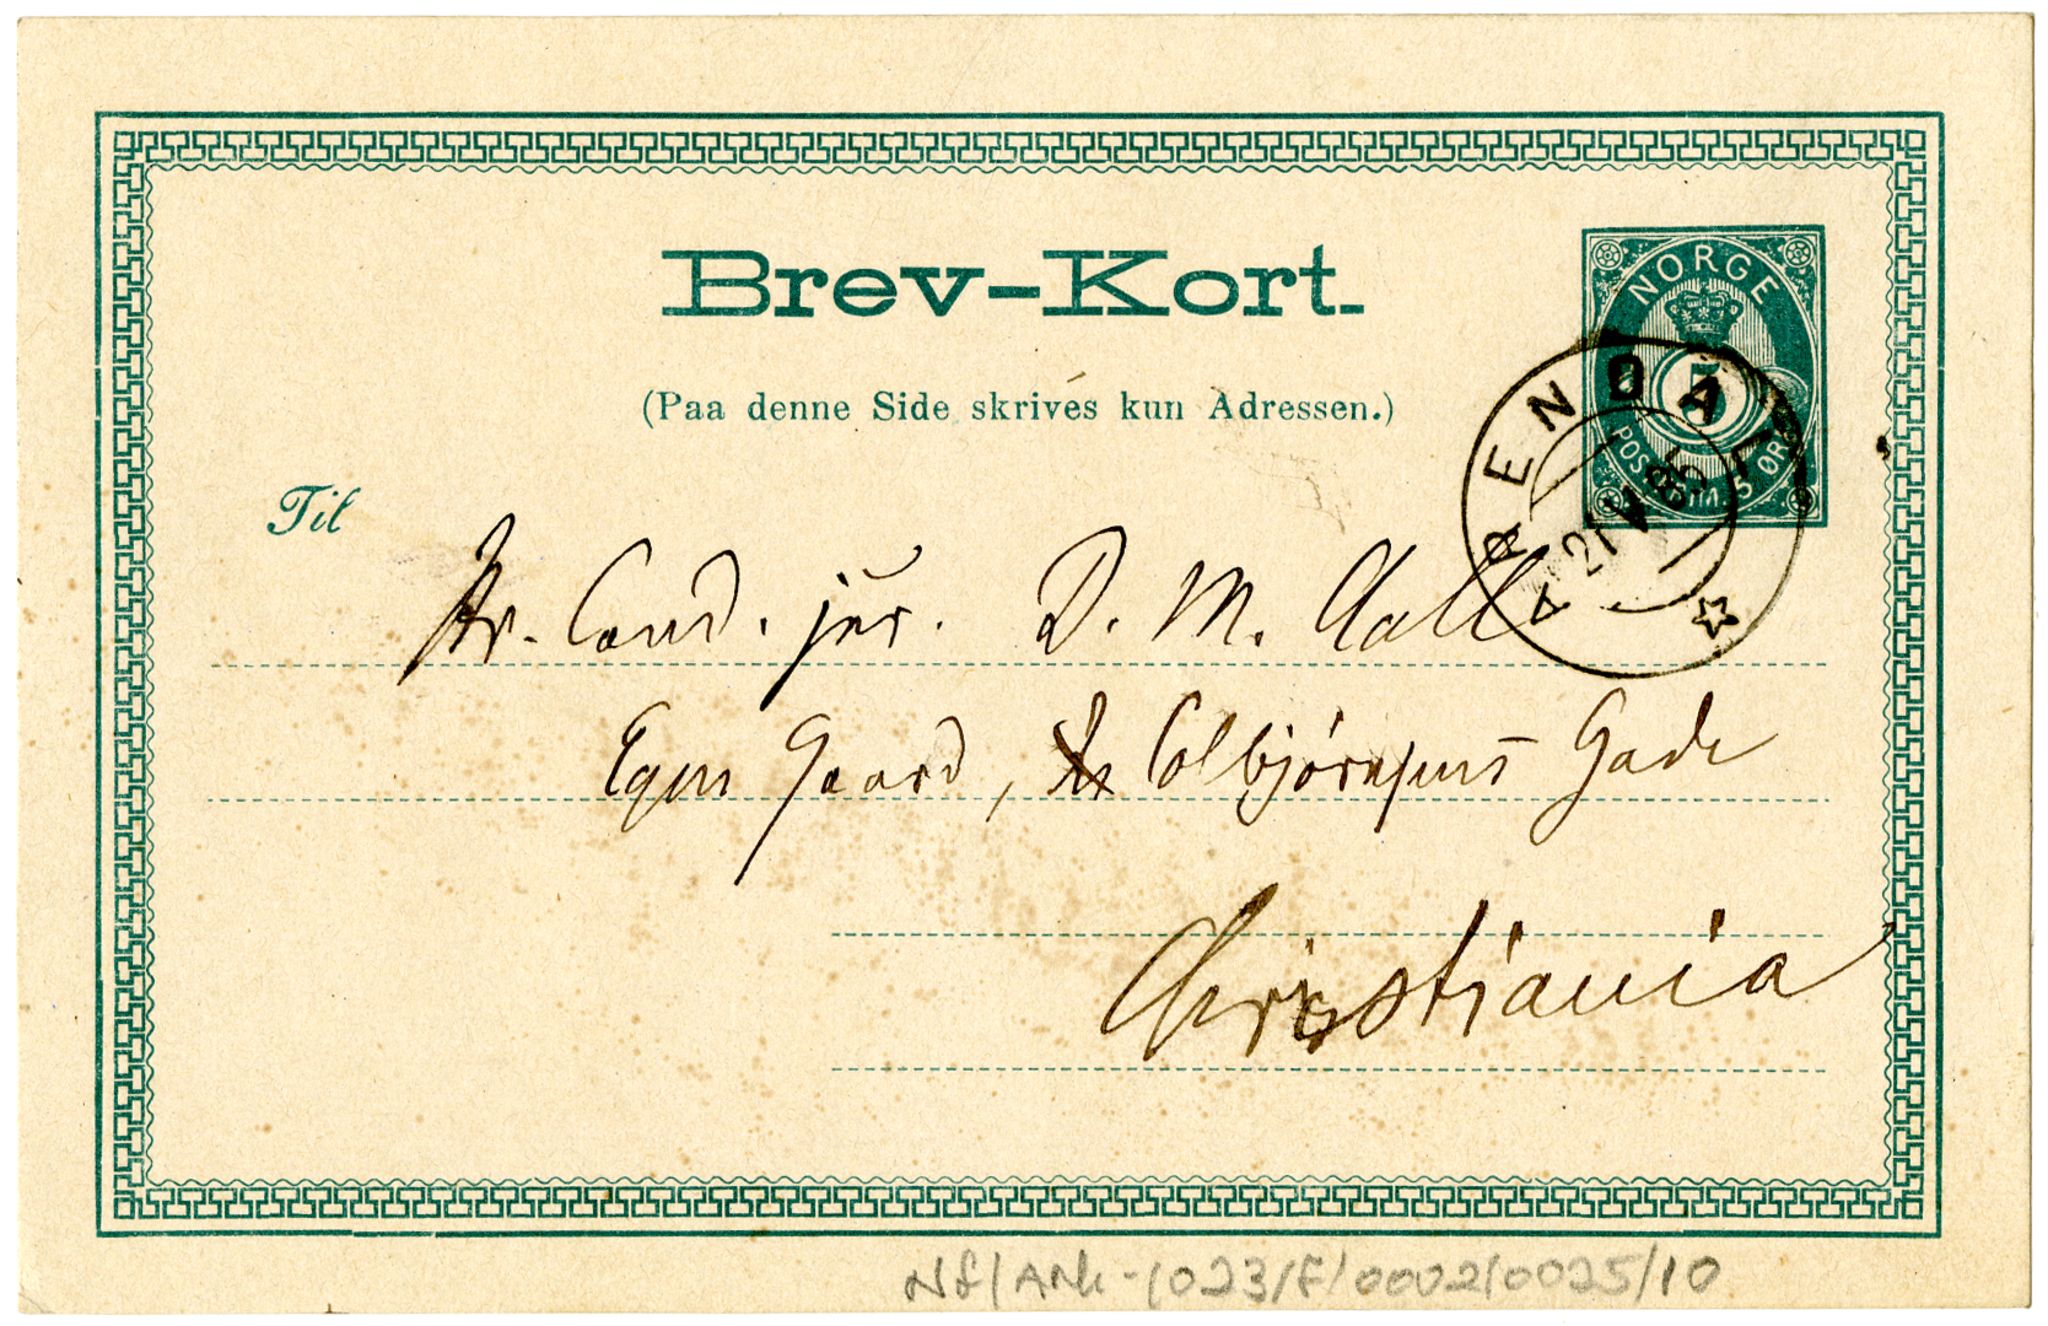 Brev-Kort.
NORGE
5
POSTFRIM. 5 ØRE
(Paa denne Side skrives kun Adressen.)
ARENDAL
85
Til
Hr. Cand. jur. D. M. Aall
Egen Gaard, Colbjørnsens Gade
Christiania
NF/Ark-1023/F/0002/0025/10